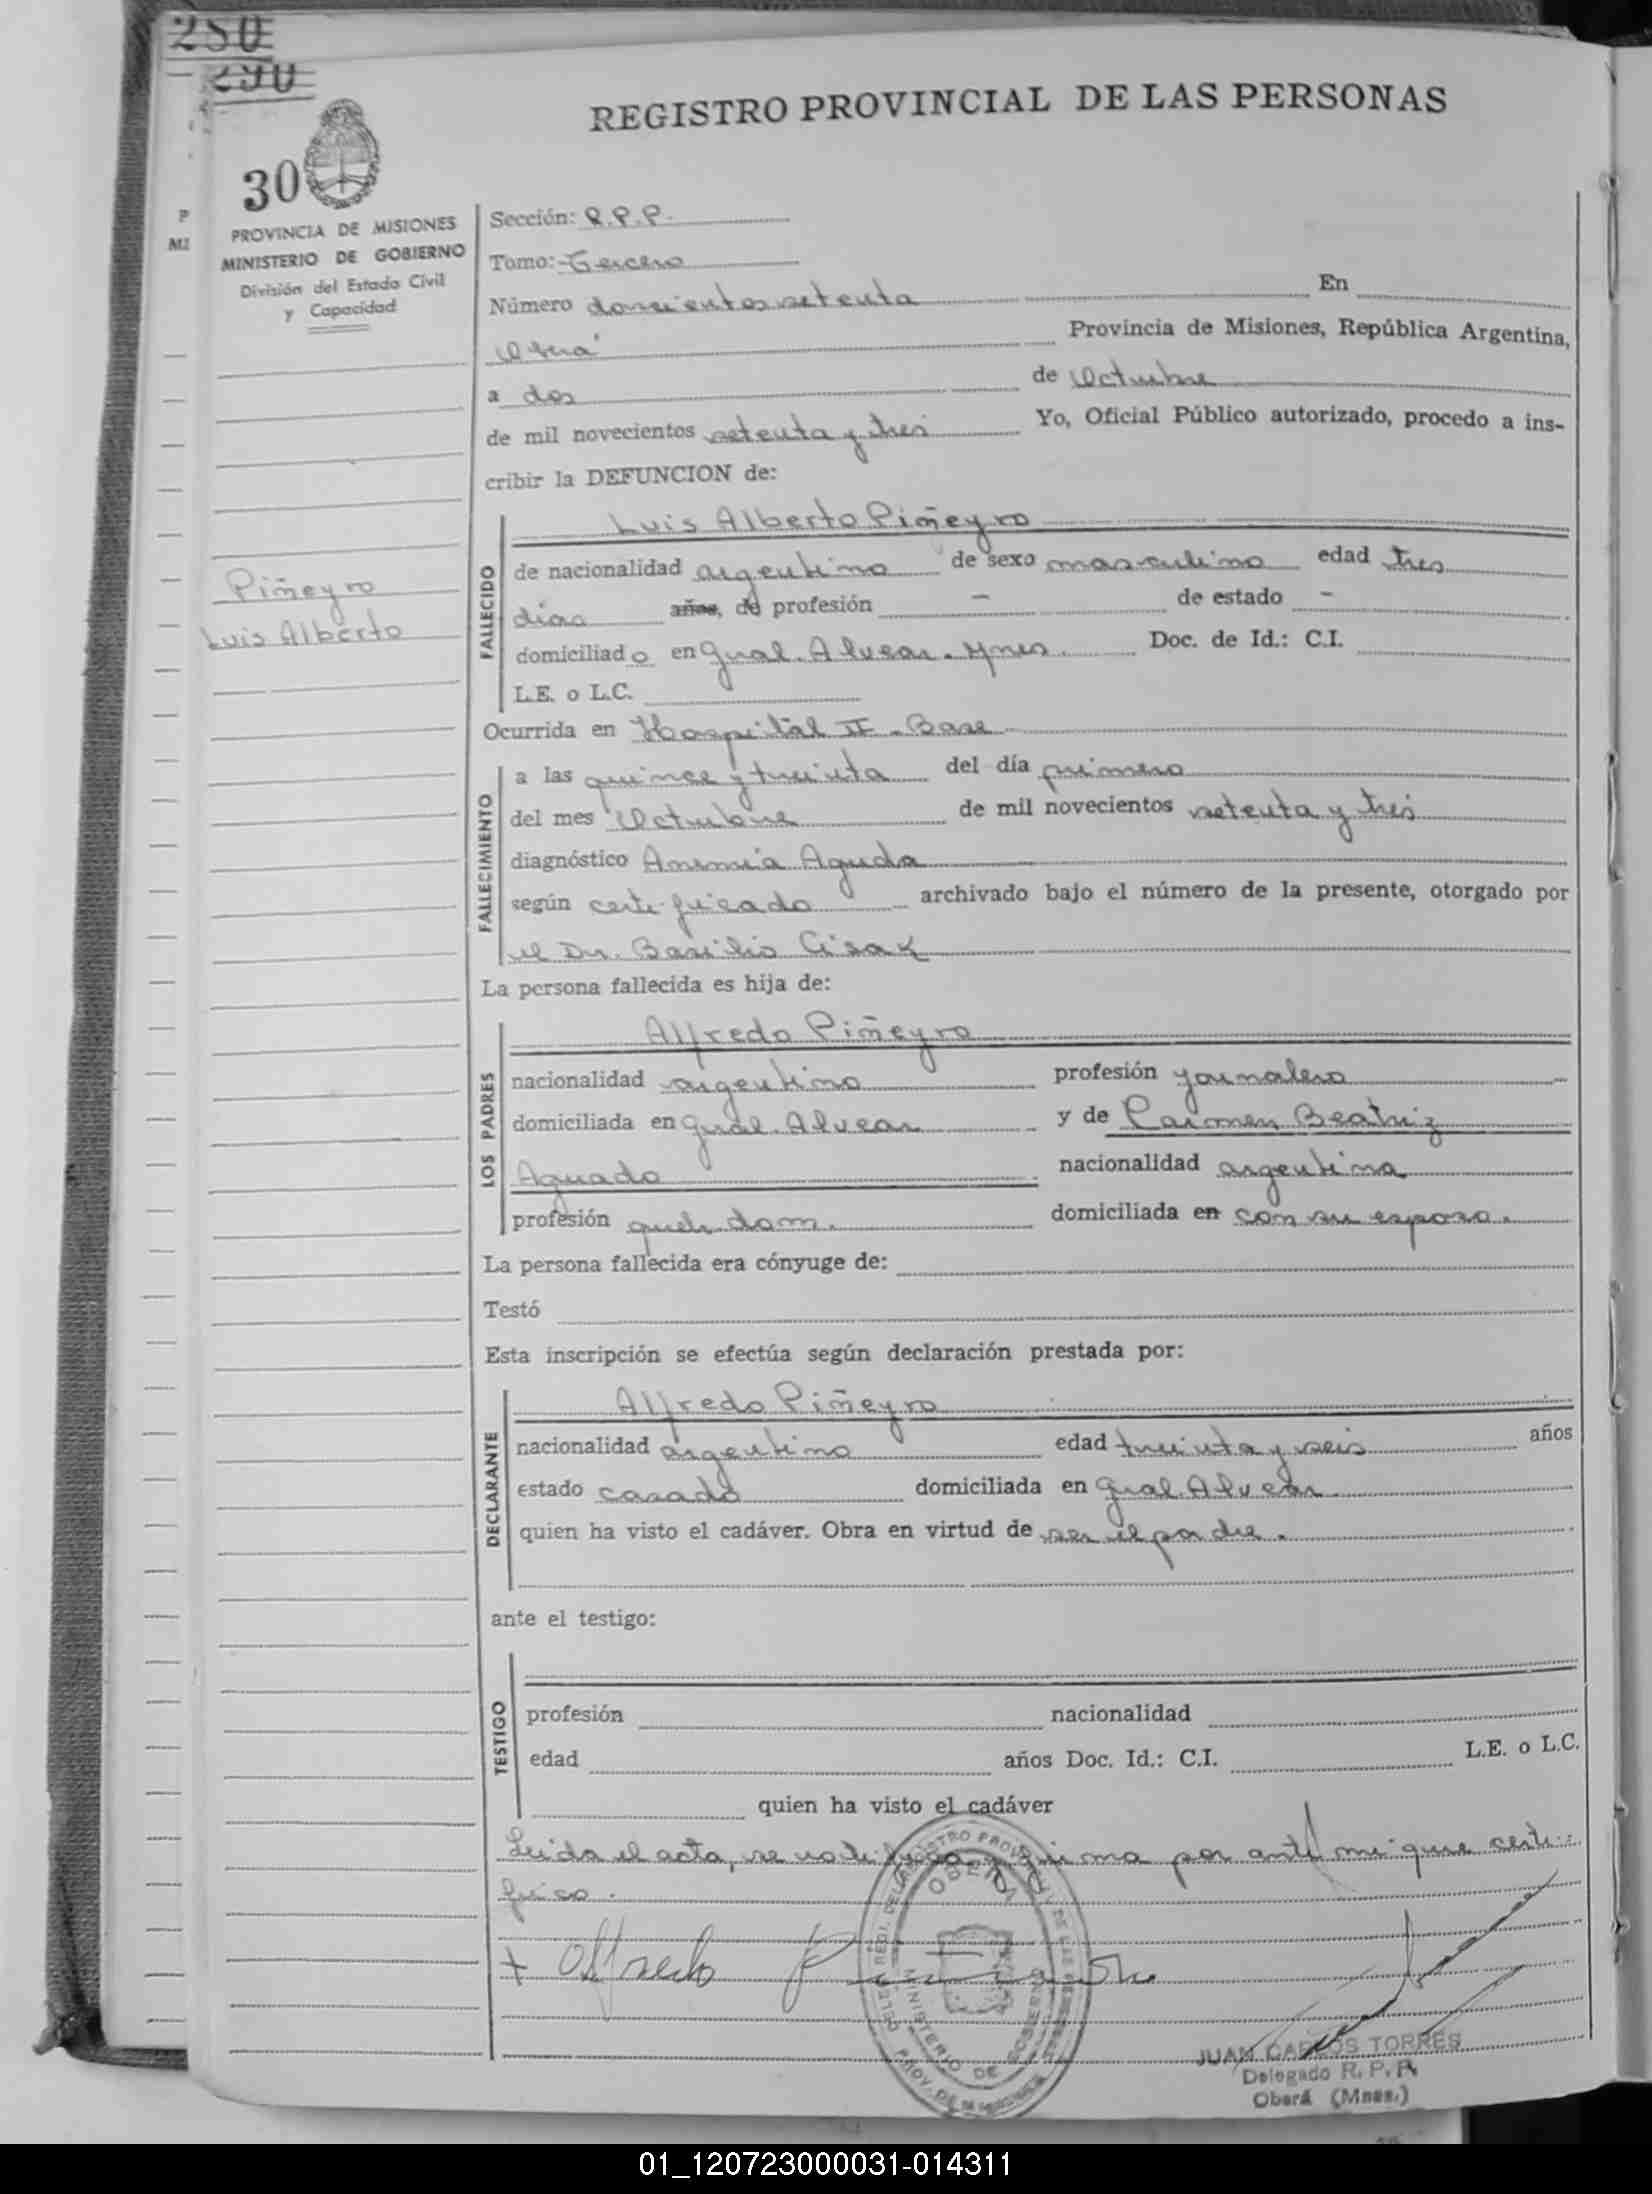 280
290
REGISTRO PROVINCIAL DE LAS PERSONAS
30
P
MI
PROVINCIA DE MISIONES
MINISTERIO DE GOBIERNO
División del Estado Civil
y Capacidad
Piñeyro
Luis Alberto
Sección: R.P.P.
Tomo: Tercero
Número doscientos setenta En
Oberá Provincia de Misiones, República Argentina,
a dos de Octubre
de mil novecientos setenta y tres Yo, Oficial Público autorizado, procedo a ins-
cribir la DEFUNCION de:
FALLECIDO
Luis Alberto Piñeyro
de nacionalidad argentino de sexo masculino edad tres
días años, de profesión - de estado -
domiciliado en Gral. Alvear. Mnes. Doc. de Id.: C.I.
L.E. o L.C.
Ocurrida en Hospital II - Base
FALLECIMIENTO
a las quince y treinta del día primero
del mes Octubre de mil novecientos setenta y tres
diagnóstico Anemia Aguda
según certificado archivado bajo el número de la presente, otorgado por
el Dr. Basilio
La persona fallecida es hija de:
LOS PADRES
Alfredo Piñeyro
nacionalidad argentino profesión jornalero
domiciliada en Gral. Alvear y de Carmen Beatriz
Aguado nacionalidad argentina
profesión queh. dom. domiciliada en con su esposo.
La persona fallecida era cónyuge de:
Testó
Esta inscripción se efectúa según declaración prestada por:
DECLARANTE
Alfredo Piñeyro
nacionalidad argentino edad treinta y seis años
estado casado domiciliada en Gral. Alvear
quien ha visto el cadáver. Obra en virtud de ser el padre.
ante el testigo:
TESTIGO
profesión nacionalidad
edad años Doc. Id.: C.I. L.E. o L.C.
quien ha visto el cadáver
Leida el acta, se ratifica y firma por ante mi que certi-
fico.
+ Alfredo
OBERA
MINISTERIO DE GOBIERNO
PROV. DE MISIONES
JUAN CARLOS TORRES
Delegado R. P. P.
Oberá (Mnes.)
01_120723000031-014311